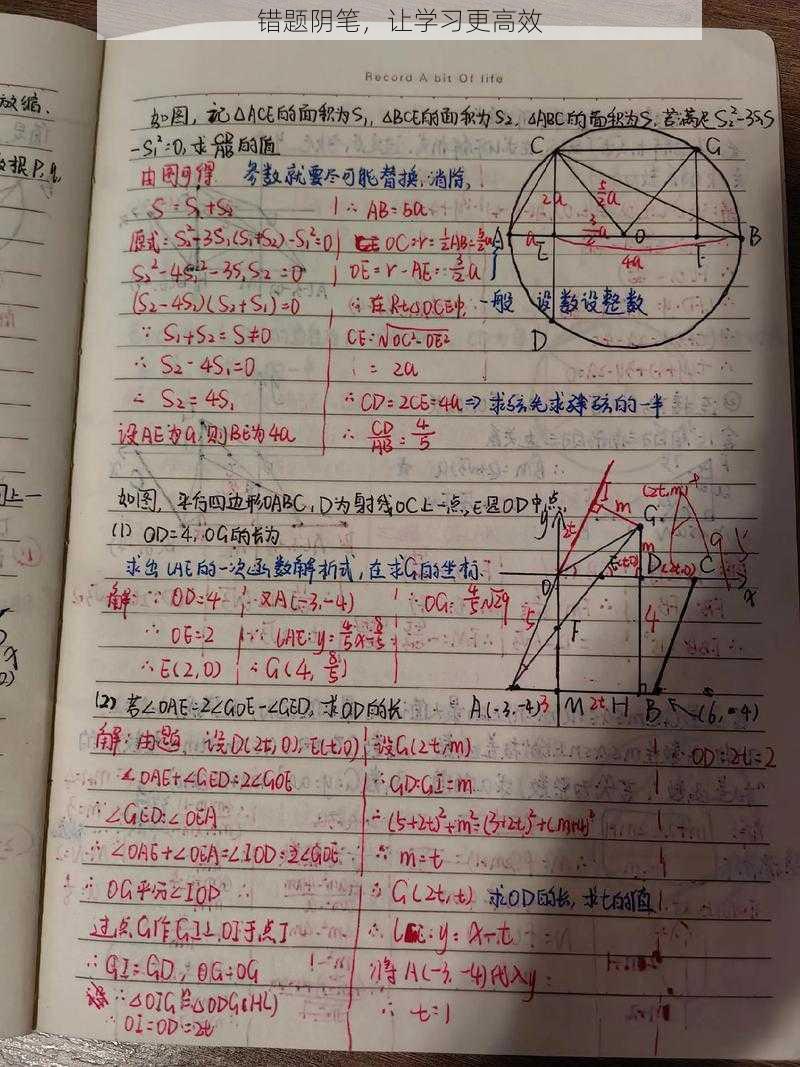 错题阴笔，让学习更高效
Record A bit Of life
如图，记△ACE的面积为S₁，△BCE的面积为S₂，△ABC的面积为S，若满足S₂²-3S₁S
-S₁²=0，求CD/AB的值
由图可得 参数就要尽可能替换，消除，
S=S₁+S₂
原式=S₂²-3S₁(S₁+S₂)-S₁²=0
S₂²-4S₁²-3S₁S₂=0
(S₂-4S₁)(S₂+S₁)=0
∵ S₁+S₂=S≠0
∴ S₂-4S₁=0
∴ S₂=4S₁
设AE为a，则BE为4a
∴ AB=5a
OC=r=½AB=5/2a
OE=r-AE=3/2a
∴在Rt△OCE中，
CE=√OC²-OE²
=2a
∴CD=2CE=4a⇒求弦先求弦的一半
∴ CD/AB=4/5
一般 设数设整数
C
G
2a
5/2a
A
a
E
3/2a
O
F
B
4a
D
如图，平行四边形OABC，D为射线OC上一点，E是OD中点，
(1) OD=4，OG的长为
求出LAE的一次函数解析式，在求G的坐标．
解：∵ OD=4
∴ OE=2
∴E(2,0)
又A(-3,-4)
∴ LAE：y=4/5x-8/5
∴G(4,8/5)
∴OG=4/5√29
y
I
2t
m
(2t,m)
G
m
O
E(t,0)
D
(2t,0)
C
x
5
F
4
A(-3,-4)
3
M
2t
H
B
(6,-4)
(2) 若∠OAE=2∠GOE-∠GED，求OD的长
解：由题，设D(2t,0)，E(t,0)
∠OAE+∠GED=2∠GOE
∵∠GED=∠OEA
∴∠OAE+∠OEA=∠IOD=2∠GOE
∴ OG平分∠IOD
过点G作GI⊥OI于点I
∴ GI=GD，OG=OG
∴△OIG≌△ODG(HL)
∴OI=OD=2t
设G(2t,m)
∴GD=GI=m
∴(5+2t)²+m²=(3+2t)²+(m+4)²
∴ m=t
∴ G(2t,t) 求OD的长，求t的值
∴ y=x-t
将A(-3,-4)代入y
∴ t=1
OD=2t=2